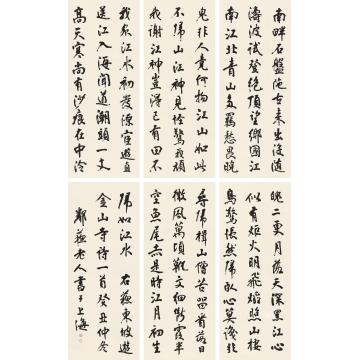 我家江水初發源宦遊直
送江入海聞道潮頭一丈
高天寒尚有沙痕在中泠
南畔石盤陀古來出沒隨
濤波試登絕頂望鄉國江
南江北青山多羈愁畏晚
尋歸楫山僧苦留看落日
微風萬頃靴文細斷霞半
空魚尾赤是時江月初生
魄二更月落天深黑江心
似有炬火明飛焰照山棲
鳥驚悵然歸臥心莫識非
鬼非人竟何物江山如此
不歸山江神見怪驚我頑
我謝江神豈得已有田不
歸如江水 右蘇東坡遊
金山寺詩一首癸丑仲冬
鄰蘇老人書于上海